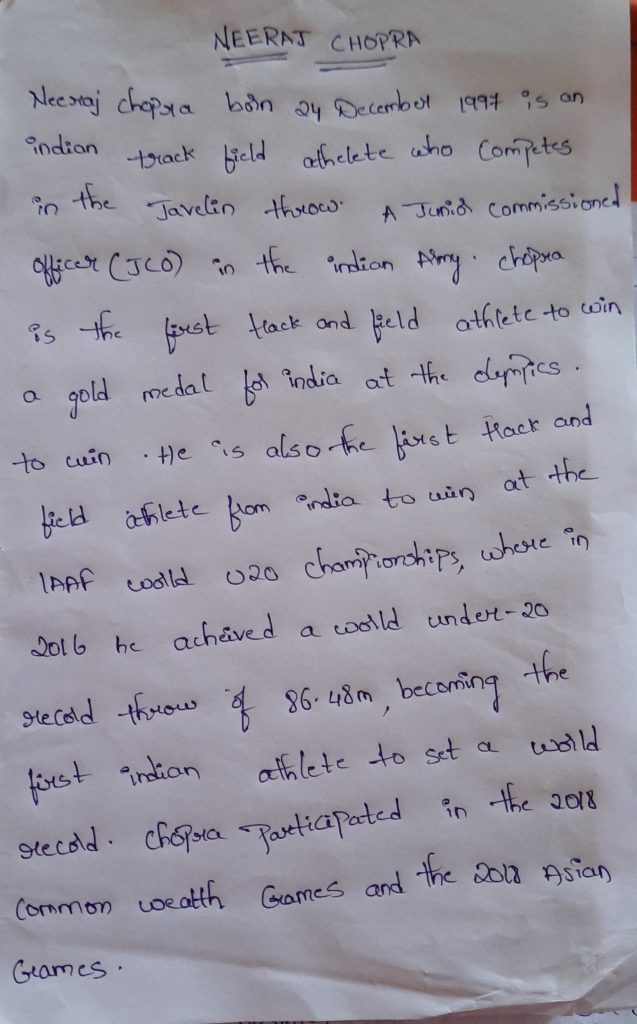 NEERAJ CHOPRA
Neeraj chopra born 24 December 1997 is an
indian track field athelete who Competes
in the Javelin throw. A Junior Commissioned
Officer (JCO) in the indian Army. chopra
is the first track and field athlete to win
a gold medal for india at the olympics.
to win. He is also the first track and
field athlete from india to win at the
IAAF world U20 championships, where in
2016 he acheived a world under-20
record throw of 86.48m, becoming the
first indian athlete to set a world
record. Chopra Participated in the 2018
Common wealth Games and the 2018 Asian
Games.